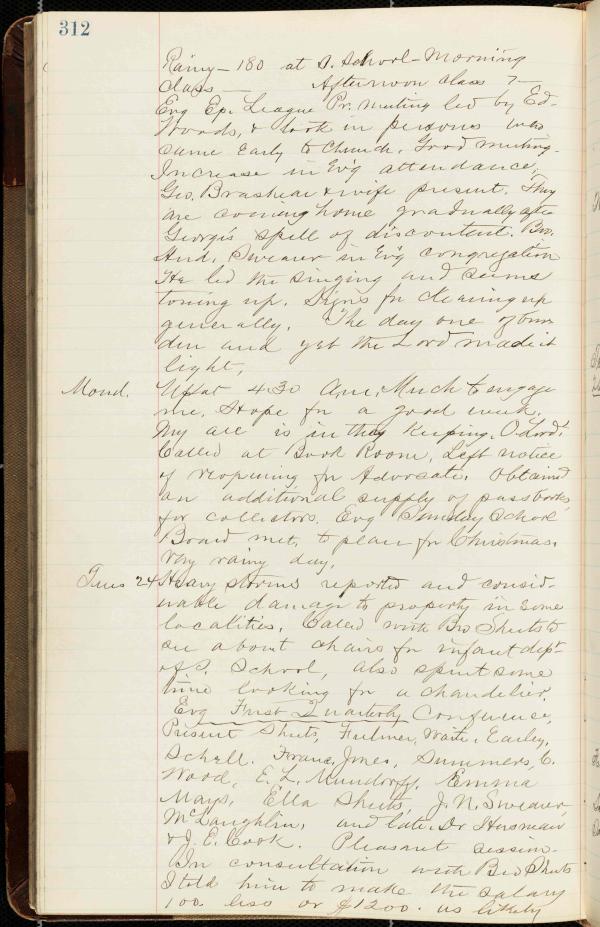 312
Rainy - 180 at S. School - Morning
Class — Afternoon Class 7 -
Evg Ep. League Pr. Meeting led by Ed.
Woods, & took in persons who
came early to Church. Good meeting.
Increase in Ev'g attendance.
Geo. Brashear & wife present. They
are coming home gradually after
George's spell of discontent. Bro.
And. Swearer in Ev'g congregation
He led the singing and seems
toning up. Signs for clearing up
generally. The day one of bur
den and yet the Lord made it
light.
Mond. Up at 4.30 Am. Much to engage
me. Hope for a good week.
My all is in thy keeping, O Lord!
Called at Book Room, Left notice
of reopening for Advocate. Obtained
an additional supply of passbooks
for collectors. Evg Sunday School
Board met, to plan for Christmas.
Very rainy day.
Tues 24 Heavy storms reported and consid-
erable damage to property in some
localities. Called with Bro Sheets to
see about chairs for infant dept
of S. School, also spent some
time looking for a chandelier.
Evg First Quarterly Conference,
Present Sheets, Fulmer, Waite, Earley,
Schell. Jones, Summers, C.
Wood, E. L. Mundorff, Emma
Mays, Ella Sheets, J. N. Swearer,
McLaughlin, and late Dr Hersman
& J. E. Cook. Pleasant session.
In consultation with Bro Sheets
I told him to make the salary
100. less or $1200. as likely